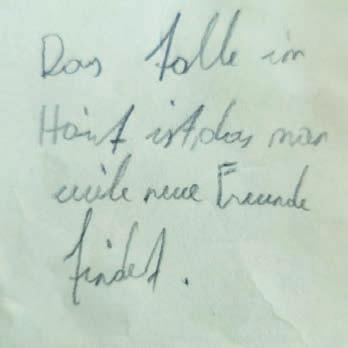 Das tolle im
Hort ist,das man
viele neue Freunde
findet.